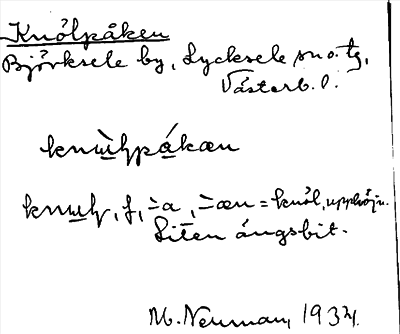 Knölpåken
Björksele by, Lycksele sn o. tg,
Västerb. l.
knɯ̀ɫpákæn
knɯɫ, f, -̀a, -̀æn = knöl, upphöjn.
Liten ängsbit.
M. Neuman, 1934.